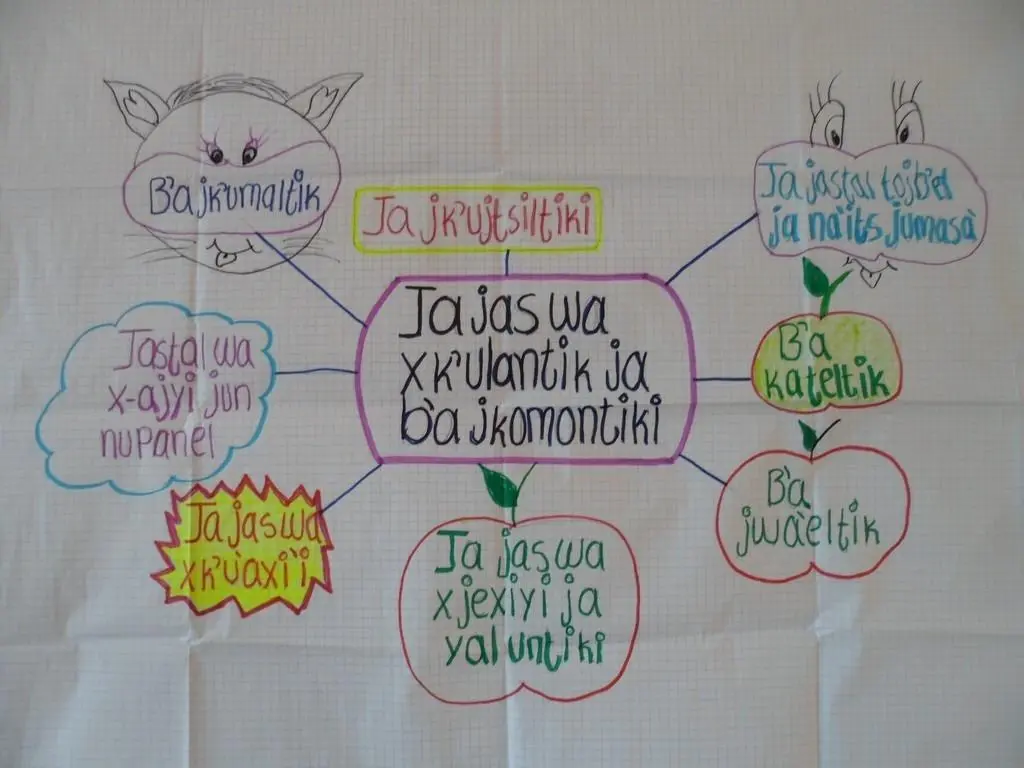 B'a jk'umaltik
Ja jk'ujtsiltiki
Ja jastal tojb'el
ja na'its jumasa'
Ja jas wa
xk'ulantik ja
b'a jkomontiki
B'a
kateltik
Jastal wa
x-ajyi jun
nupanel
B'a
jwa'eltik
Ja jas wa
xk'u'axi'i
Ja jas wa
xjexiyi ja
yal untiki